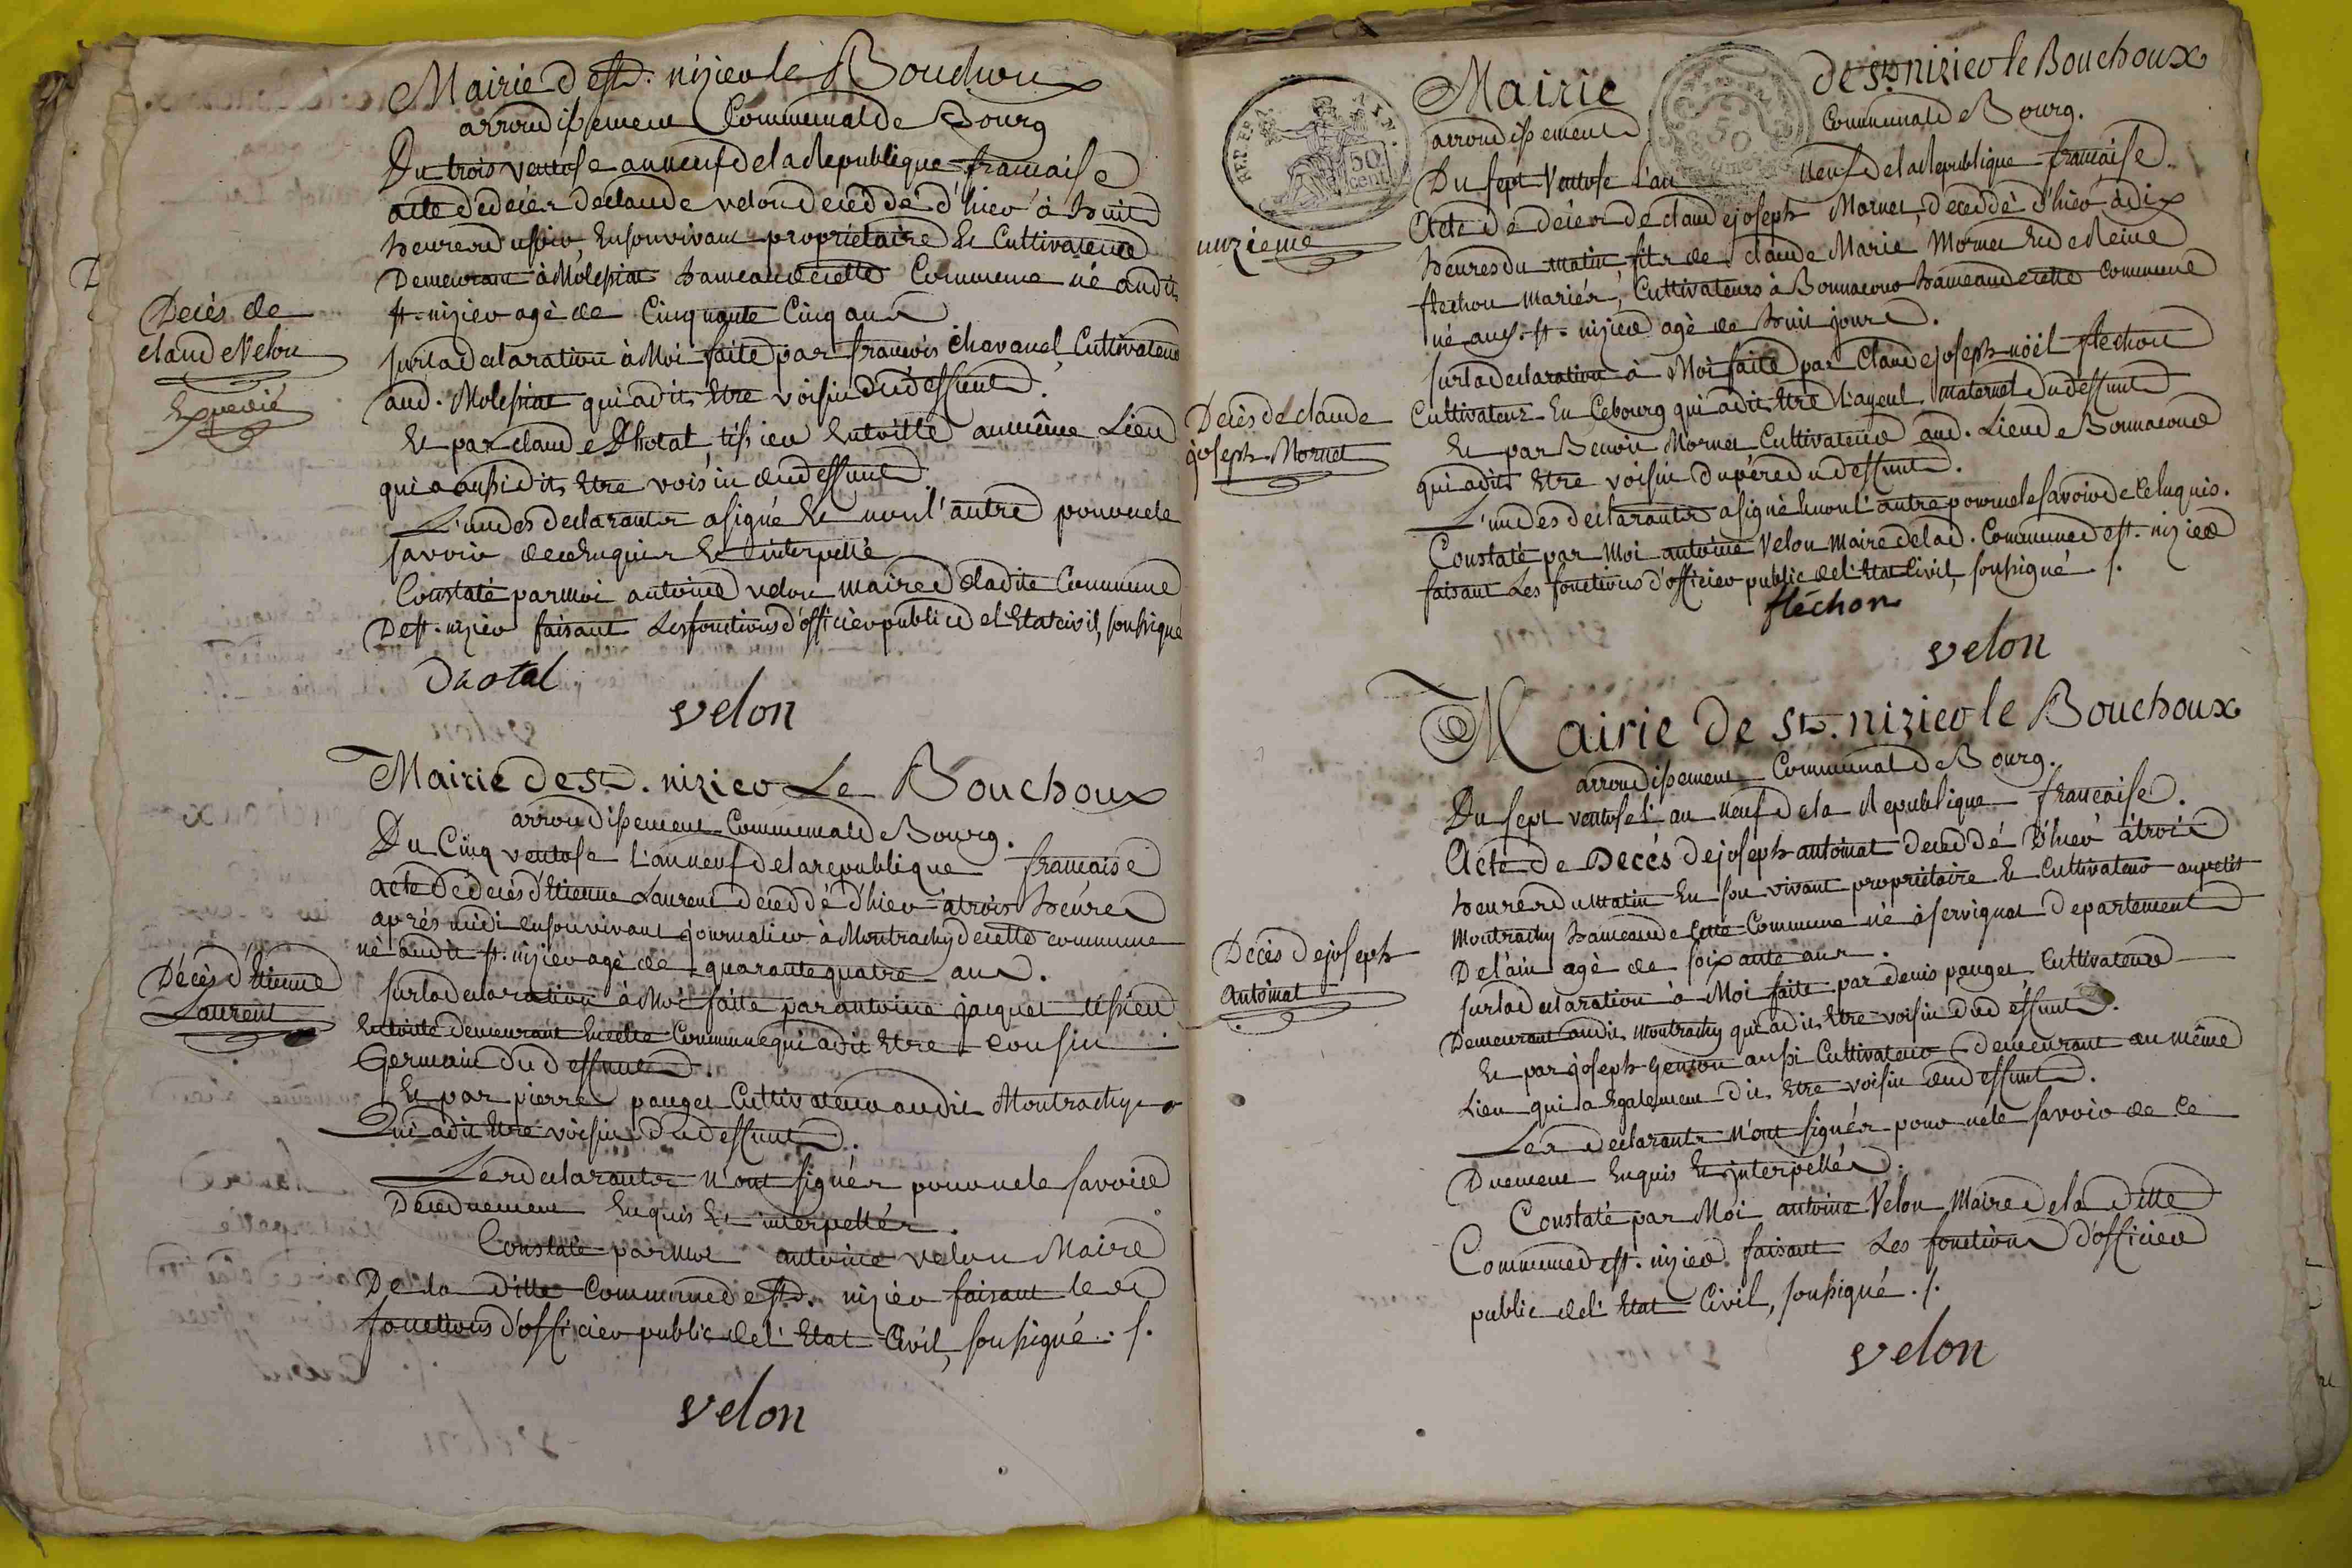 Mairie de st. nizier le Bouchoux
arrondissement Communal de Bourg
Du trois ventose an neuf de la Republique francaise
acte de décés de claude velon décédé d'hier à huit
heures du soir, En son vivant propriétaire Et Cultivateur
Demeurant à Molessiat hameau de cette Commune né audit
st. nizier agé de Cinquante Cinq ans
sur la declaration à Moi faite par francois Chavanel Cultivateur
aud. Molessiat qui a dit Etre voisin du deffunt.
Et par claude Dhotal, tissier Entoille au même Lieu
qui a aussi dit Etre voisin du deffunt
L'un des declarants a signé Et non l'autre pour ne le
savoir de ce Enquis Et interpellé
Constaté par moi antoine velon maire de ladite Commune
De st. nizier faisant Les fonctions d'officier public de l'Etat civil, soussigné
Dhotal
velon
Decés de
claude Velon
Expedié
Mairie de St. nizier Le Bouchoux
arrondissement Communal de Bourg.
Du Cinq ventose L'an neuf de la republique francaise
acte de decés d'Etienne Laurent décédé d'hier à trois heures
aprés midi en son vivant journalier à Montrachy de cette commune
né audit st. nizier agé de quarante quatre ans.
sur la declaration à Moi faite par antoine jacquet tissier
Entoille demeurant En cette Commune qui a dit Etre cousin
Germain du deffunt.
Et par pierre pauget Cultivateur audit Montrachy
Qui a dit Etre voisin du deffunt.
Les declarants n'ont signés pour ne le savoir
De ce duement Enquis Et interpellés.
Constaté par moi antoine velon Maire
De la ditte Commune de st. nizier faisant les
fonctions d'officier public de l'Etat Civil, soussigné ./.
velon
Décès d'Etienne
Laurent
REP. FRA.
50
cent.
50
centimes
unzieme
Mairie de St. nizier le Bouchoux
arrondissement Communal de Bourg.
Du sept Ventose L'an neuf de la Republique francaise.
Acte de décés de claude joseph Mornet, décédé d'hier à dix
heures du matin fils de claude Marie Mornet Et de Reine
flechon mariés, Cultivateurs à Bonnacour hameau de cette Commune
né aud. st. nizier agé de huit jours.
sur la declaration à Moi faite par Claude joseph noël flechon
Cultivateur En Cebourg qui a dit Etre L'ayeul maternel du deffunt
Et par Benoit Mornet Cultivateur aud. Lieu de Bonnacour
qui a dit Etre voisin du pére du deffunt.
L'un des declarants a signé Et non l'autre pour ne le savoir de ce Enquis.
Constaté par Moi antoine Velon Maire de lad. Commune de st. nizier
faisant Les fonctions d'officier public de l'Etat Civil, soussigné ./.
fléchon
velon
Decès de claude
joseph Mornet
Mairie de St. nizier le Bouchoux
arrondissement Communal de Bourg.
Du sept ventose l'an neuf de la Republique francaise.
Acte de Decés de joseph antomat décédé d'hier à trois
heures du matin En son vivant propriétaire Et Cultivateur au petit
Montrachy hameau de cette Commune né à servignat Departement
De l'ain agé de soixante ans.
sur la declaration à Moi faite par denis pauget Cultivateur
Demeurant audit Montrachy qui a dit Etre voisin du deffunt.
Et par joseph Genton aussi Cultivateur Demeurant au même
Lieu qui a Egalement dit Etre voisin du deffunt.
Les declarants n'ont signés pour ne le savoir de ce
Duement Enquis Et interpellés.
Constaté par Moi antoine Velon Maire de la ditte
Commune de st. nizier faisant Les fonctions d'officier
public de l'Etat Civil, soussigné ./.
velon
Decès de joseph
antomat